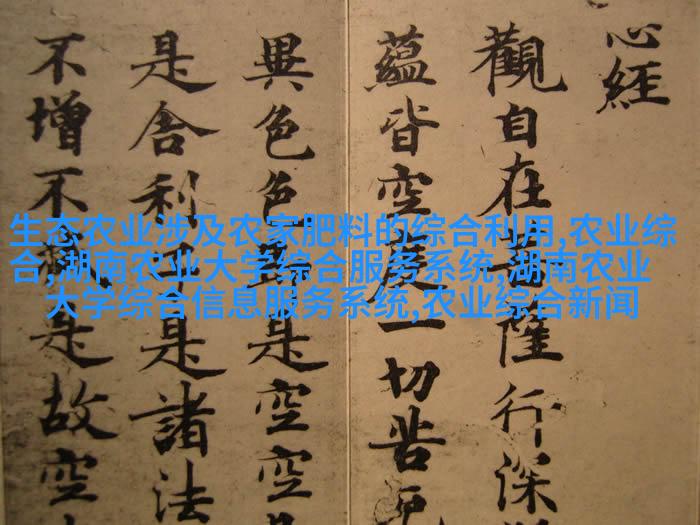 心經
觀自在菩薩行深
蘊皆空度一切苦厄
異色色即是空空
是舍利子是諸法
不增不減是故空
生态农业涉及农家肥料的综合利用,农业综
合,湖南农业大学综合服务系统,湖南农业
大学综合信息服务系统,农业综合新闻